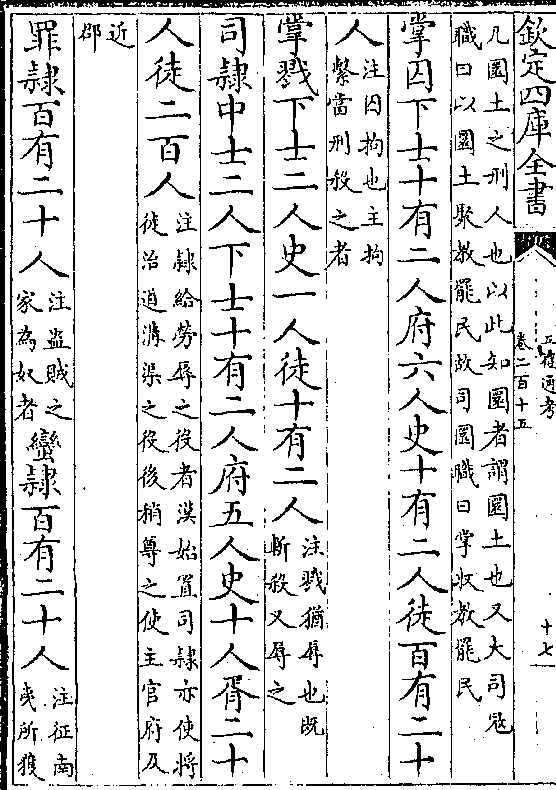 欽定四庫全書
五禮通考
卷二百十五
十七
凡圜土之刑人也以此知圜者謂圜土也又大司寇
職曰以圜土聚教罷民故司圜職曰掌收教罷民
掌囚下士十有二人府六人史十有二人徒百有二十
人
注囚拘也主拘
繫當刑殺之者
掌戮下士二人史一人徒十有二人
注戮猶辱也既
斬殺又辱之
司隸中士二人下士十有二人府五人史十人胥二十
人徒二百人
注隸給勞辱之役者漢始置司隸亦使將
徒治道溝渠之役後稍尊之使主官府及
近
郡
罪隸百有二十人
注盜賊之
家為奴者
蠻隸百有二十人
注征南
夷所獲